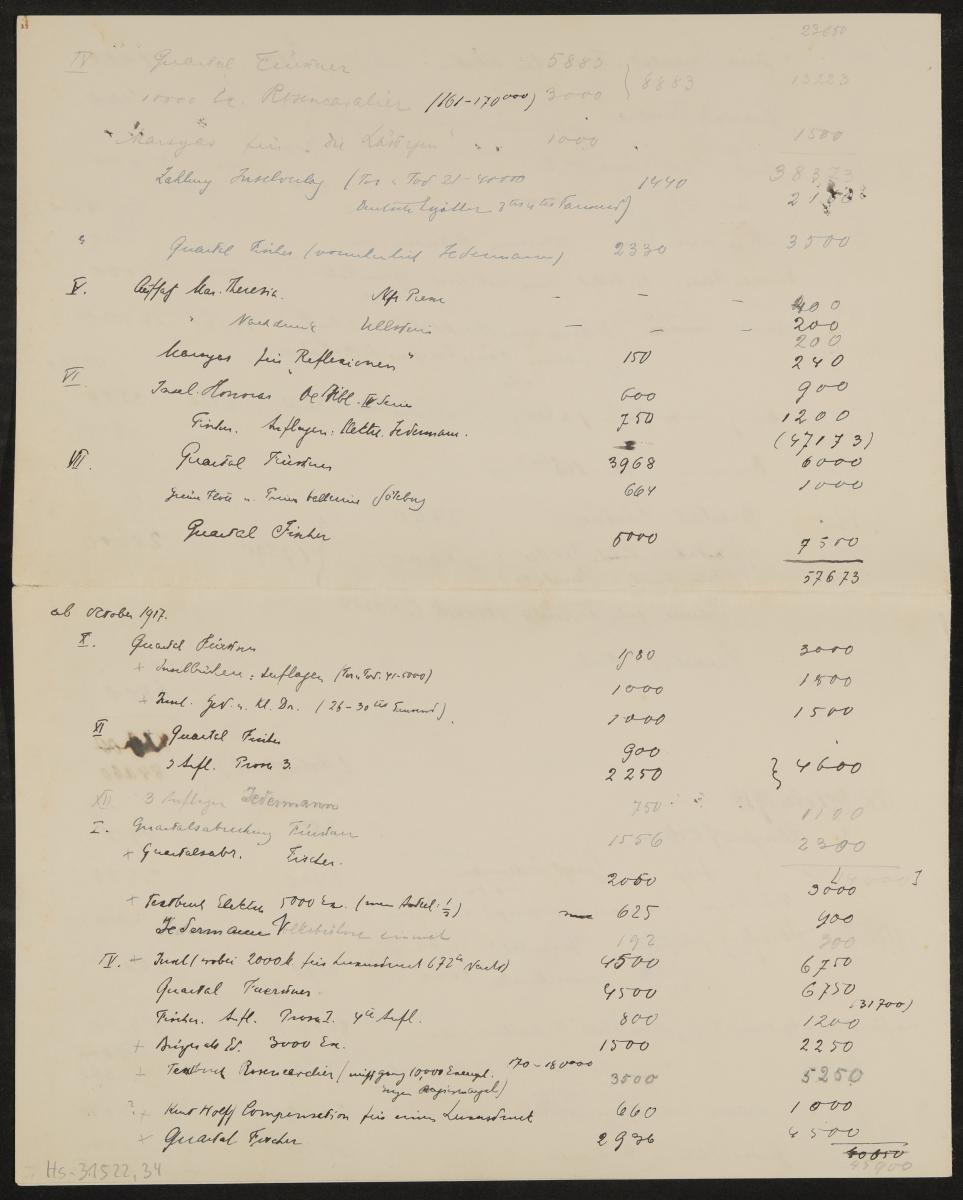 23650
IV Quartal Fürstner 5883 } 8883 13223
10000 Ex. Rosencavalier (161-170000) 3000
Marsyas für "die Lästigen" 1000 1500
38373
Zahlung Inselverlag (Tor u Tod 21-40000 1440 21
3tes 4tes Tausend)
" Quartal Fischer (vornehmlich Jedermann) 2330 3500
V. Aufsatz Mar. Theresia. N fr Presse - - - 400
" Nachdruck Ullstein - - - 200
200
Marsyas für "Reflexionen" 150 240
VI. Insel. Honorar Oe Bibl. III Serie 600 900
Fischer. Auflagen: Jedermann. 750 1200
(47173)
VII. Quartal Fürstner 3968 6000
Grüne Flöte u. Göteborg 664 1000
Quartal Fischer 5000 7500
57673
ab October 1917.
X. Quartal Fürstner 1980 3000
+ Inselbücher: Auflagen (Tor u Tod. 41-5000) 1000 1500
+ Insel. Ged. u. Kl. Dr. (26-30tes Tausend) 1000 1500
XI Quartal Fischer 900
3 Aufl. Prosa 3. 2250 } 4600
XII 3 Auflagen Jedermann 750 1100
I. Quartalsabrechnung Fürstner 1556 2300
+ Quartalsabr. Fischer. 2000 3000
+ Textbuch Elektra 5000 Ex. (mein Anteil: 1/2) 625 900
Jedermann Volksbühne 192 300
IV. + Insel (wobei 2000 k. für Luxusdruck) 4500 6750
Quartal Fuerstner 4500 6750
(31700)
Fischer. Aufl. Prosa I. 4te Aufl. 800 1200
+ 3000 Ex. 1500 2250
+ Textbuch Rosencavalier (10,000 Exempl. 170-180000 3500 5250
wegen Papiermangel)
? + Kurt Wolff Compensation für einen Luxusdruck 660 1000
+ Quartal Fischer 2996 4500
Hs-31522,34